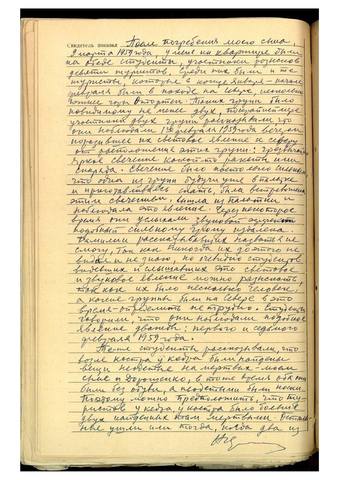 Свидетель показал После погребения моего сына
9 марта 1959 года у меня на квартире были
на обеде студенты, участники розысков
девяти туристов, среди них были и те
туристы, которые в конце января - начале
февраля были в походе на севере, несколько
южнее горы Отортен. Таких групп было
повидимому не менее двух,
участники двух групп рассказывали, что
они наблюдали 1го февраля 1959 года вечером
поразившее их световое явление к северу
от расположения этих групп: чрезвычайно
яркое свечение какой-то ракеты или
снаряда. Свечение было настолько сильным
что одна из групп будучи уже в палатке
и приготовляясь спать, была встревожена
этим свечением, вышла из палатки и
наблюдала это явление. Через некоторое
время они услыхали звуковой эффект
подобный сильному грому издалека.
Фамилии рассказывавших назвать не
смогу, так как никогда их до этого не
видел и не знаю, но очевидно студентов
видевших и слышавших это световое
и звуковое явление можно разыскать
так как их было несколько человек,
а какие группы были на севере в это
время - определить не трудно. Студенты
говорили, что они наблюдали подобное
явление дважды: первого и седьмого
февраля 1959 года.
Те же студенты рассказывали, что
возле костра у кедра были найдены
вещи не надетые на мертвых - моем
сыне и Дорошенко, в то же время оба они
были без обуви, а надетыми были носки.
Поэтому можно предположить, что ту-
ристов у кедра у костра было больше
двух найденных там мертвыми. Осталь-
ные ушли или тогда, когда два из